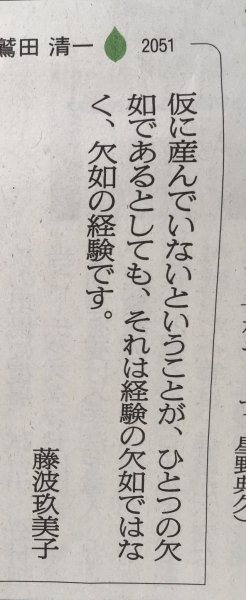 鷲田 清一 2051
仮に産んでいないということが、ひとつの欠
如であるとしても、それは経験の欠如ではな
く、欠如の経験です。
藤波玖美子